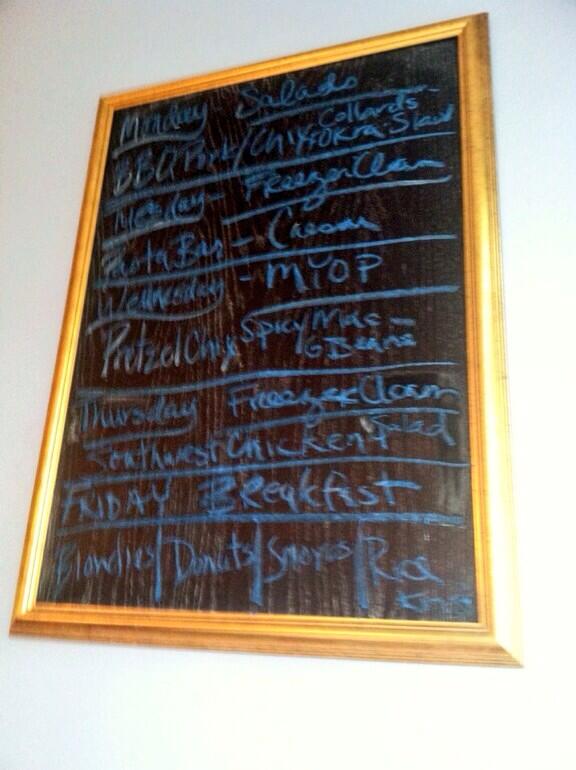 Monday Salads
BBQ Pork/Chix Collards-
Okra-Slaw
Monday- Freezer Clean
Pasta Bar - Caesar
Wednesday - MYOP
Pretzel Chix Spicy Mac -
G Beans
Thursday Freezer Clean
Southwest Chicken Salad
FRIDAY Breakfast
Blondies/Donuts/Smores/Rice